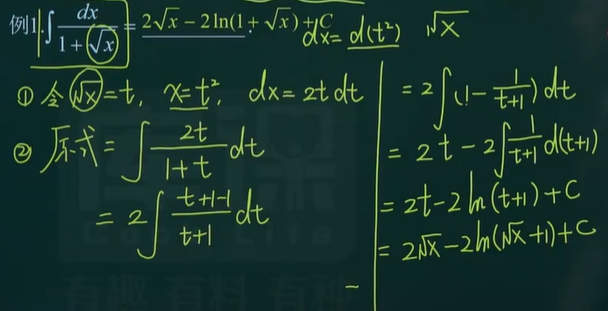 例1. ∫ dx/(1+√x) = 2√x − 2ln(1+√x)+C
dx = d(t²) √x
① 令√x=t, x=t², dx=2t dt
② 原式= ∫ 2t/(1+t) dt
= 2∫ (t+1-1)/(t+1) dt
= 2∫(1-1/(t+1)) dt
= 2t - 2∫ 1/(t+1) d(t+1)
= 2t-2ln(t+1)+C
= 2√x-2ln(√x+1)+C
有趣 有料 有种